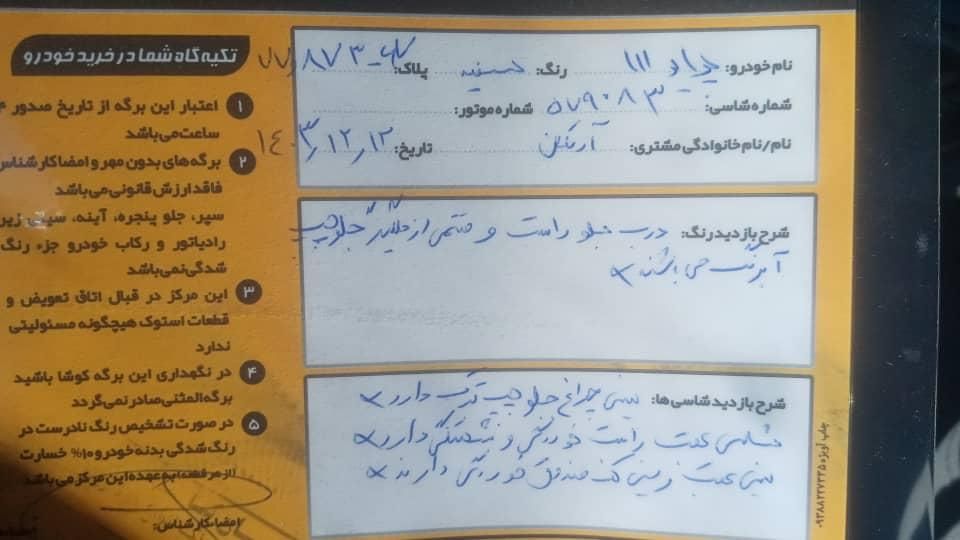 نام خودرو: پراید ۱۱۱ رنگ: سفید پلاک: ۸۷۳ ۷۷
شماره شاسی: ۵۷۹۰۸۳ شماره موتور:
نام/نام خانوادگی مشتری: تاریخ: ۱۴۰۳/۱۲/۱۲
شرح بازدید رنگ: درب جلو راست و قسمتی از گلگیر جلو چپ
آبرنگ می باشند
شرح بازدید شاسی ها: سینی چراغ جلو چپ ترک دارد
شاسی عقب راست خوردگی و دارد
سینی عقب زمینی کف صندوق خوردگی دارند
تکیه گاه شما در خرید خودرو
۱ اعتبار این برگه از تاریخ صدور
ساعت می باشد
۲ برگه های بدون مهر و امضا کارشناس
فاقد ارزش قانونی می باشد
سپر، جلو پنجره، آینه، سینی زیر
رادیاتور و رکاب خودرو جزء رنگ
شدگی نمی باشد
۳ این مرکز در قبال اتاق تعویض و
قطعات استوک هیچگونه مسئولیتی
ندارد
۴ در نگهداری این برگه کوشا باشید
برگه المثنی صادر نمی گردد
۵ در صورت تشخیص رنگ نادرست در
رنگ شدگی بدنه خودرو ۱۰% خسارت
(از هر قطعه) به عهده این مرکز می باشد
امضا کارشناس: